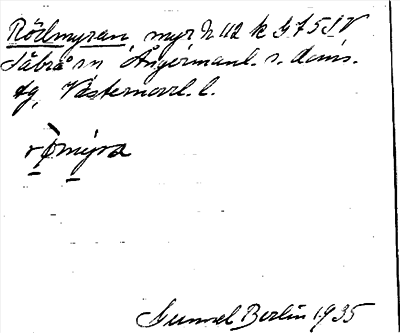 Rödmyran, myr h 112 k G 75 SV
Säbrå sn Ångermanl. s. doms.
tg, Västernorrl. l.
rø̀myra
Gunnel Berlin 1935